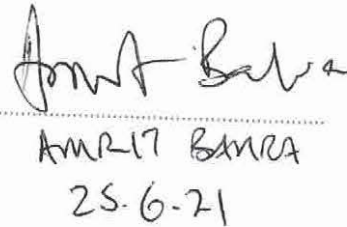 Amrit Bahra
AMRIT BAHRA
25.6.21